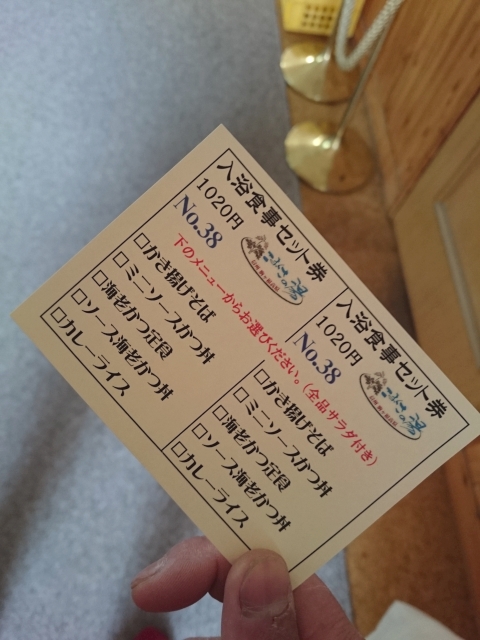 入浴食事セット券
1020円
No.38
下のメニューからお選びください。(全品サラダ付き)
□かき揚げそば
□ミニソースかつ丼
□海老かつ定食
□ソース海老かつ丼
□カレーライス
入浴食事セット券
1020円
No.38
□かき揚げそば
□ミニソースかつ丼
□海老かつ定食
□ソース海老かつ丼
□カレーライス